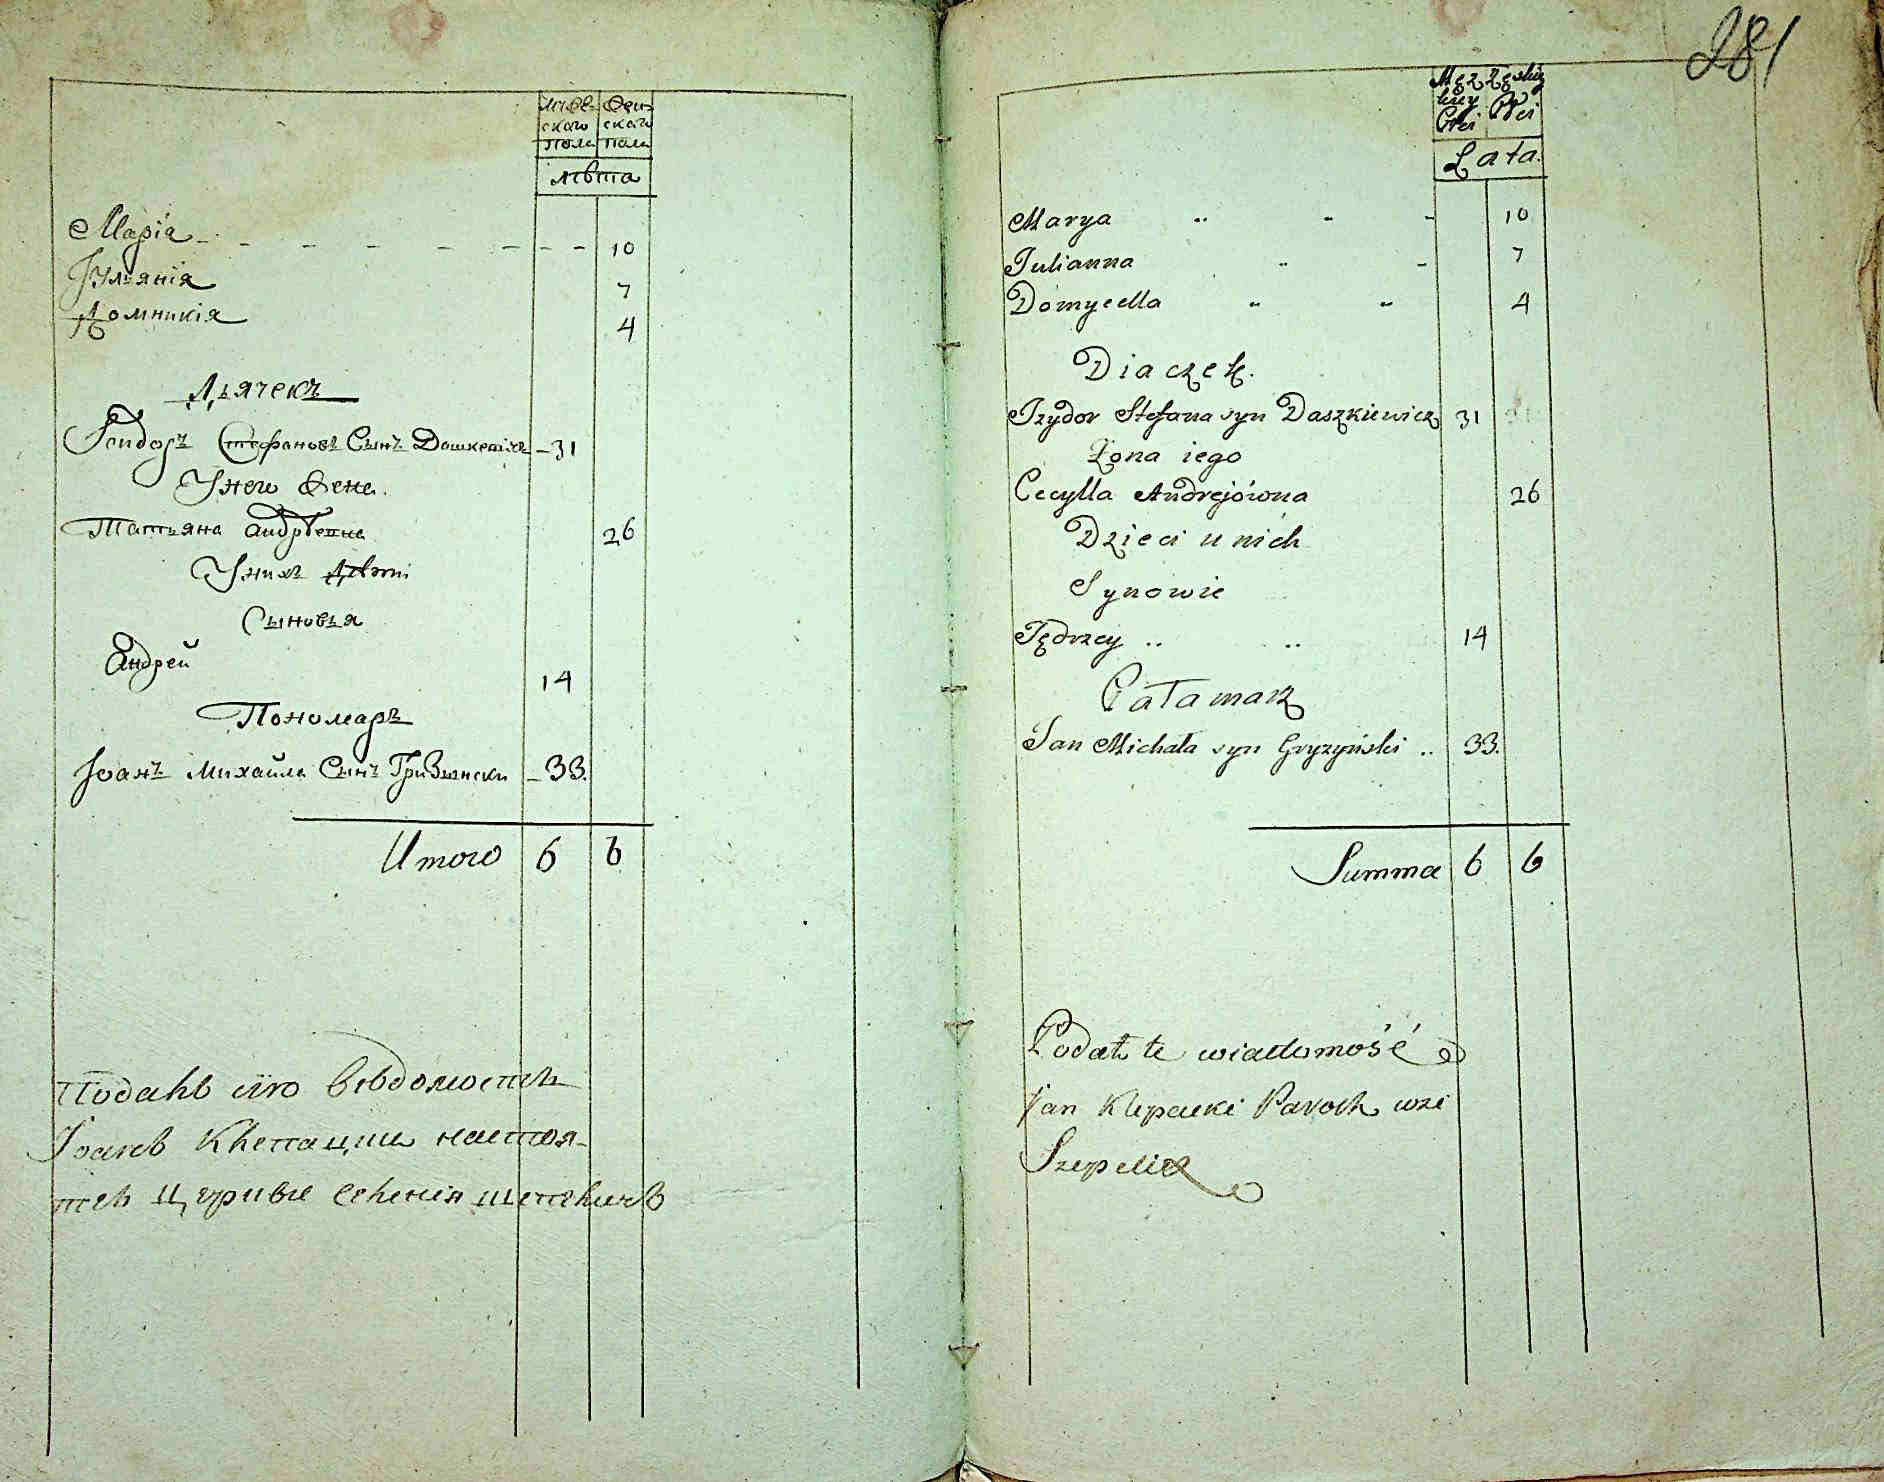 281
Муже- Жен-
скаго скаго
Пола Пола
лѣта
Марія 10
Іуліянія 7
Домникія 4
Дьячекъ
Ісидоръ Стефановъ Сынъ Дашкевичъ 31
Унего Жена
Татьяна Андрѣевна 26
Унихъ Дѣти
Сыновья
Андрей 14
Пономаръ
Іоанъ Михайла Сынъ Гризынски 33.
Итого 6 6
Подалъ сію вѣдомость
Іоанъ Клепацки настоя-
тель церкви селенія Шепеличъ
Męz Zęskiy
kiey Płci
Płci
Lata.
Marya 10
Julianna 7
Domycella 4
Diaczek.
Jzydor Stefana syn Daszkiewicz 31
Zona iego
Cecylla Andrejówna 26
Dzieci u nich
Synowie
Jędrzey 14
Pałamarz
Jan Michała syn Gryzyński 33.
Summa 6 6
Podał te wiadomość
Jan Klepacki Paroch wsi
Szepelicz